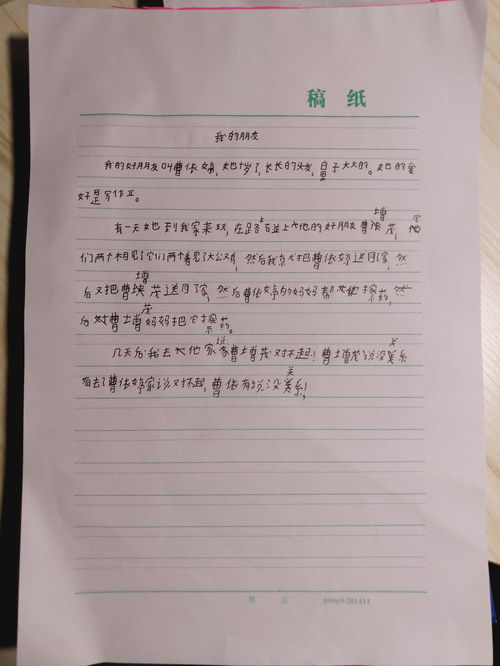 稿 纸
我的朋友
我的好朋友叫曹依婷,她岁了,长长的头发,鼻子大大的。她的爱
好是写作业。
有一天她到我家来玩,在路上碰上他的好朋友曹增茂,它
们两个相见了它们两个看见了大公,然后我把曹依婷送回家,然
后又把曹增茂送回了家,然后曹依婷的妈妈帮她擦药,然
后对曹增茂妈妈把它擦药。
几天后我去他家说曹增茂对不起!曹增茂说没关系
去了曹依婷家说对不起,曹依说没关系!
05969·201411